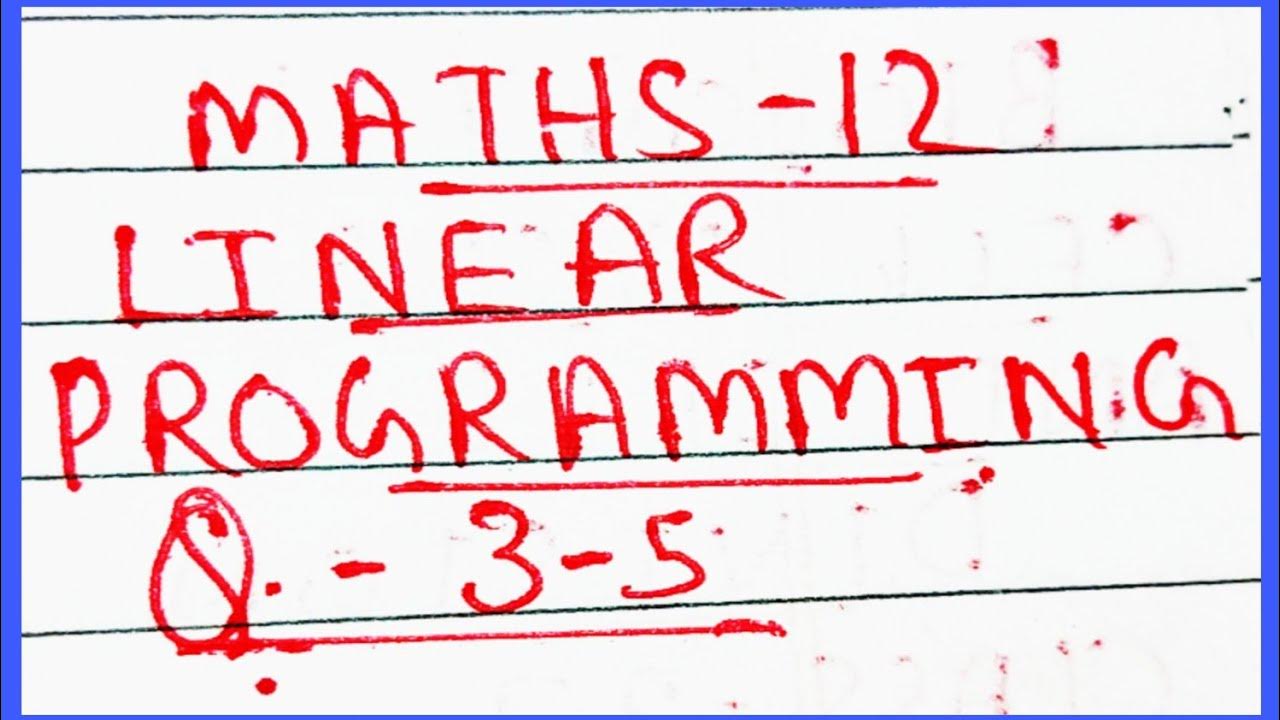 MATHS -12
LINEAR
PROGRAMMING
Q. - 3-5